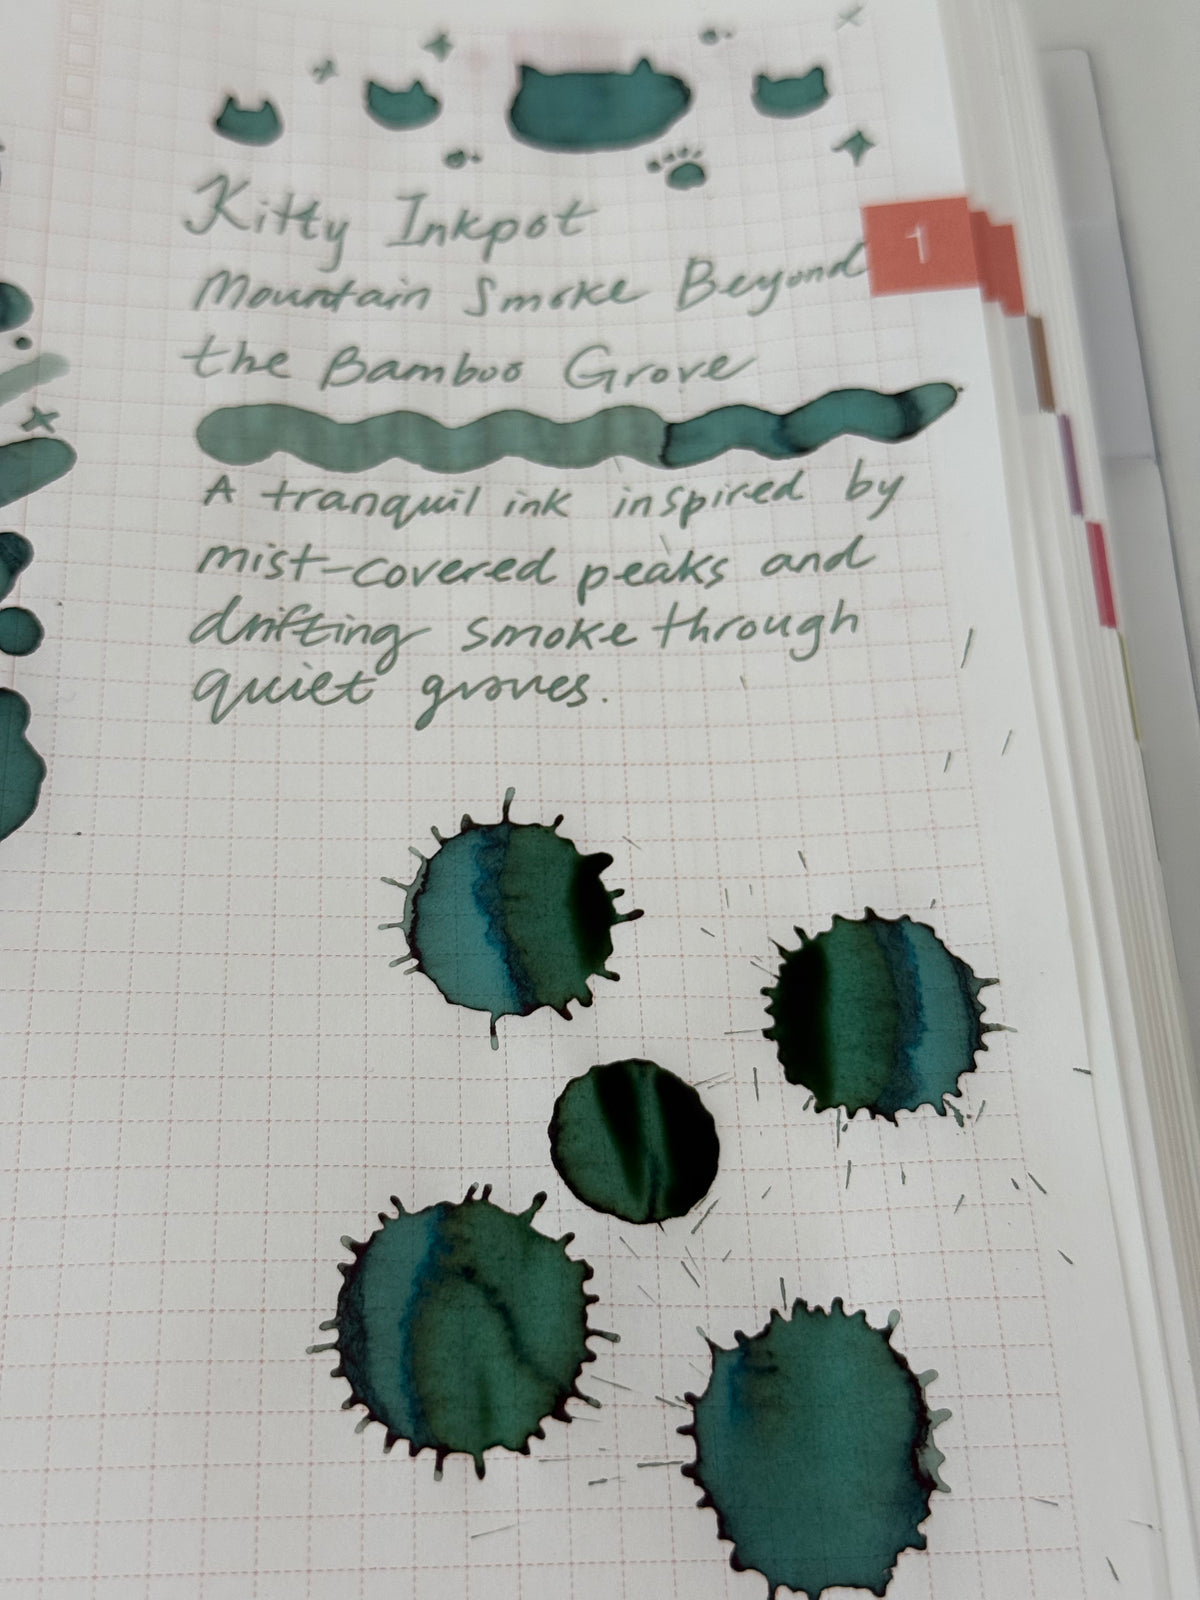 Kitty Inkpot
1
Mountain Smoke Beyond
the Bamboo Grove
A tranquil ink inspired by
mist-covered peaks and
drifting smoke through
quiet groves.